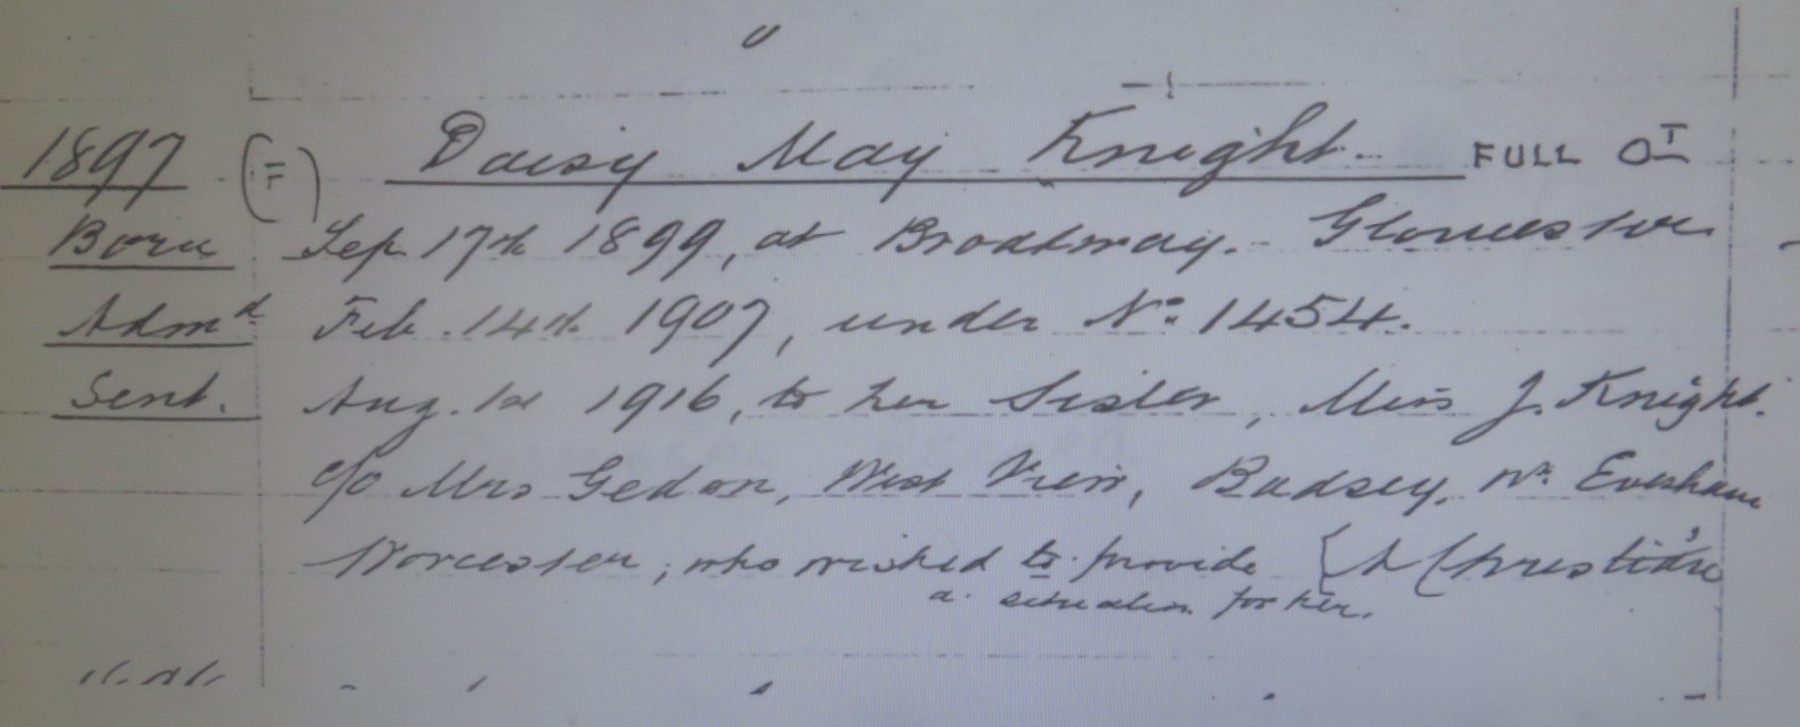 1897 (F) Daisy May Knight. FULL O
Born Sep. 17th 1899, at Broadway. Gloucester.
Admd Feb. 14th 1907, under No: 1454.
Sent. Aug. 1st 1916, to her Sister, Miss J. Knight.
c/o Mrs Gedon, West View, Badsey, Nr. Evesham
Worcester, who wished to provide {A Christian
a situation for her.